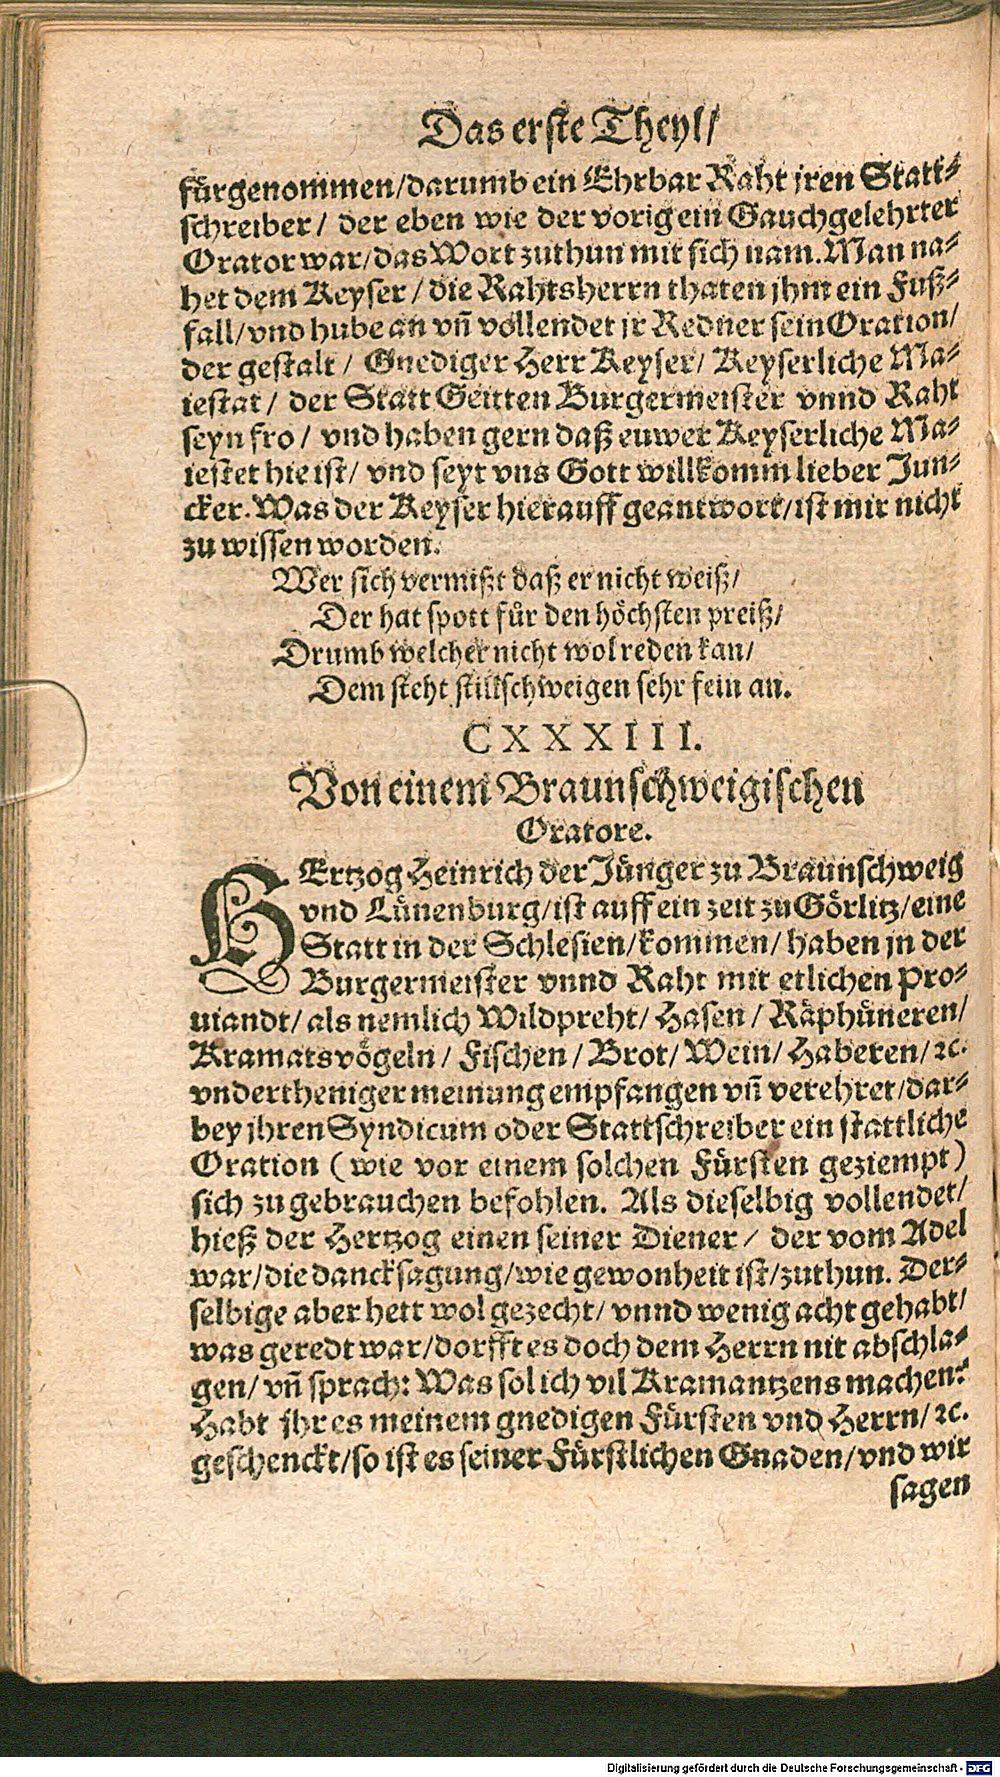 Das erste Theyl/
fürgenommen/darumb ein Ehrbar Raht jren Statt⸗
schreiber/ der eben wie der vorig ein Gauchgelehrter
Orator war/das Wort zuthun mit sich nam. Man na⸗
het dem Keyser/ die Rahtsherrn thaten jhm ein Fuß⸗
fall/vnd hube an vñ vollendet jr Redner sein Oration/
der gestalt/ Gnediger Herr Keyser/ Keyserliche Ma⸗
iestat/ der Statt Geitten Burgermeister vnnd Raht
seyn fro/ vnd haben gern daß euwer Keyserliche Ma⸗
iestet hie ist/ vnd seyt vns Gott willkomm lieber Jun⸗
cker. Was der Keyser hierauff geantwort/ist mir nicht
zu wissen worden.
Wer sich vermißt daß er nicht weiß/
Der hat spott für den höchsten preiß/
Drumb welcher nicht wol reden kan/
Dem steht stillschweigen sehr fein an.
CXXXIII.
Von einem Braunschweigischen
Oratore.
HErtzog Heinrich der Jünger zu Braunschweig
vnd Lünenburg/ist auff ein zeit zu Görlitz/eine
Statt in der Schlesien/kommen/haben jn der
Burgermeister vnnd Raht mit etlichen Pro⸗
uiandt/ als nemlich Wildpreht/ Hasen/ Räphüneren/
Kramatsvögeln/ Fischen/ Brot/ Wein/ Haberen/ ꝛc.
vndertheniger meinung empfangen vñ verehret/dar⸗
bey jhren Syndicum oder Stattschreiber ein stattliche
Oration (wie vor einem solchen Fürsten geziempt)
sich zu gebrauchen befohlen. Als dieselbig vollendet/
hieß der Hertzog einen seiner Diener/ der vom Adel
war/die dancksagung/wie gewonheit ist/zuthun. Der⸗
selbige aber hett wol gezecht/ vnnd wenig acht gehabt/
was geredt war/dorfft es doch dem Herrn nit abschla⸗
gen/ vñ sprach: Was sol ich vil Kramantzens machen?
Habt jhr es meinem gnedigen Fürsten vnd Herrn/ ꝛc.
geschenckt/so ist es seiner Fürstlichen Gnaden/vnd wir
sagen
Digitalisierung gefördert durch die Deutsche Forschungsgemeinschaft - DFG